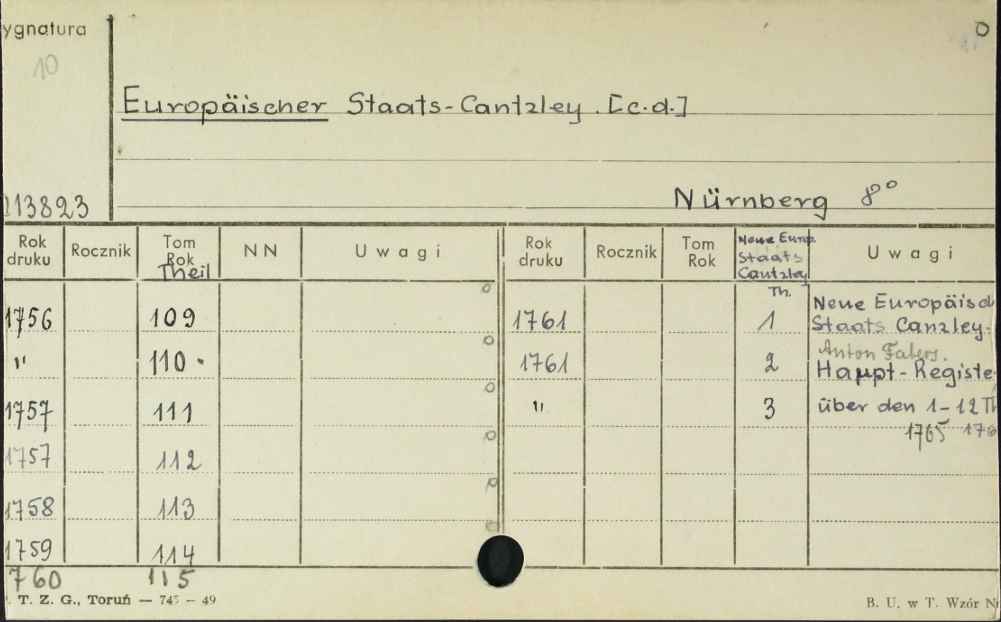 ygnatura
10
0
Europäischer Staats-Cantzley. [c.d.]
113823
Nürnberg 8°
Rok druku Rocznik Tom Rok Theil NN Uwagi Rok druku Rocznik Tom Rok Neue Europ. Staats Cantzley Th. Uwagi
1756 109 1761 1 Neue Europäisch
Staats Canzley.
" 110 . 1761 2 Anton Fabers.
Haupt-Registe
1757 111 " 3 über den 1-12 Th
1765 176
1757 112
1758 113
1759 114
760 115
T. Z. G., Toruń — 745 — 49
B. U. w T. Wzór N